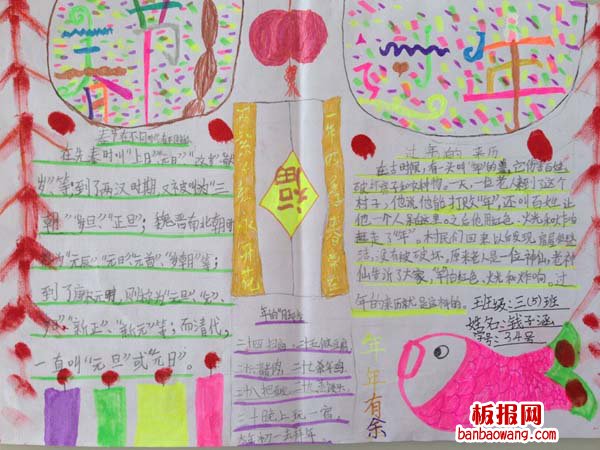 春节
在先秦时叫"上日""元日""改岁""献
岁"等;到了两汉时期,又被叫为"三
朝""岁旦""正旦";魏晋南北朝时
称为"元辰""元日""元首""岁朝"等;
到了唐宋元明,则称为"元旦""元"
"岁日""新正""新元"等;而清代,
一直叫"元旦"或"元日"。
万紫千红永开花
福
一年四季春常在
二十四扫
二十五做豆腐
二十六
二十八把面
三十晚上玩一宵
大年初一去拜年
年
过年的来历
在古时候,有一头叫"年"的
一天,一位老人来到了这个
村子,他说他能打败"年",还叫百姓让
他一个人来这里。之后他用红色、火光和炸响
赶走了"年"。村民们回来以后发现房屋依然
洁,没有被破坏,原来老人是一位神仙,老神
仙告诉了大家,"年"怕红色、火光和炸响。过
年的来历就是这样的。
班级:三(5)班
姓名:钱子涵
学号:34号
年年有余
板报网
banbaowang.com